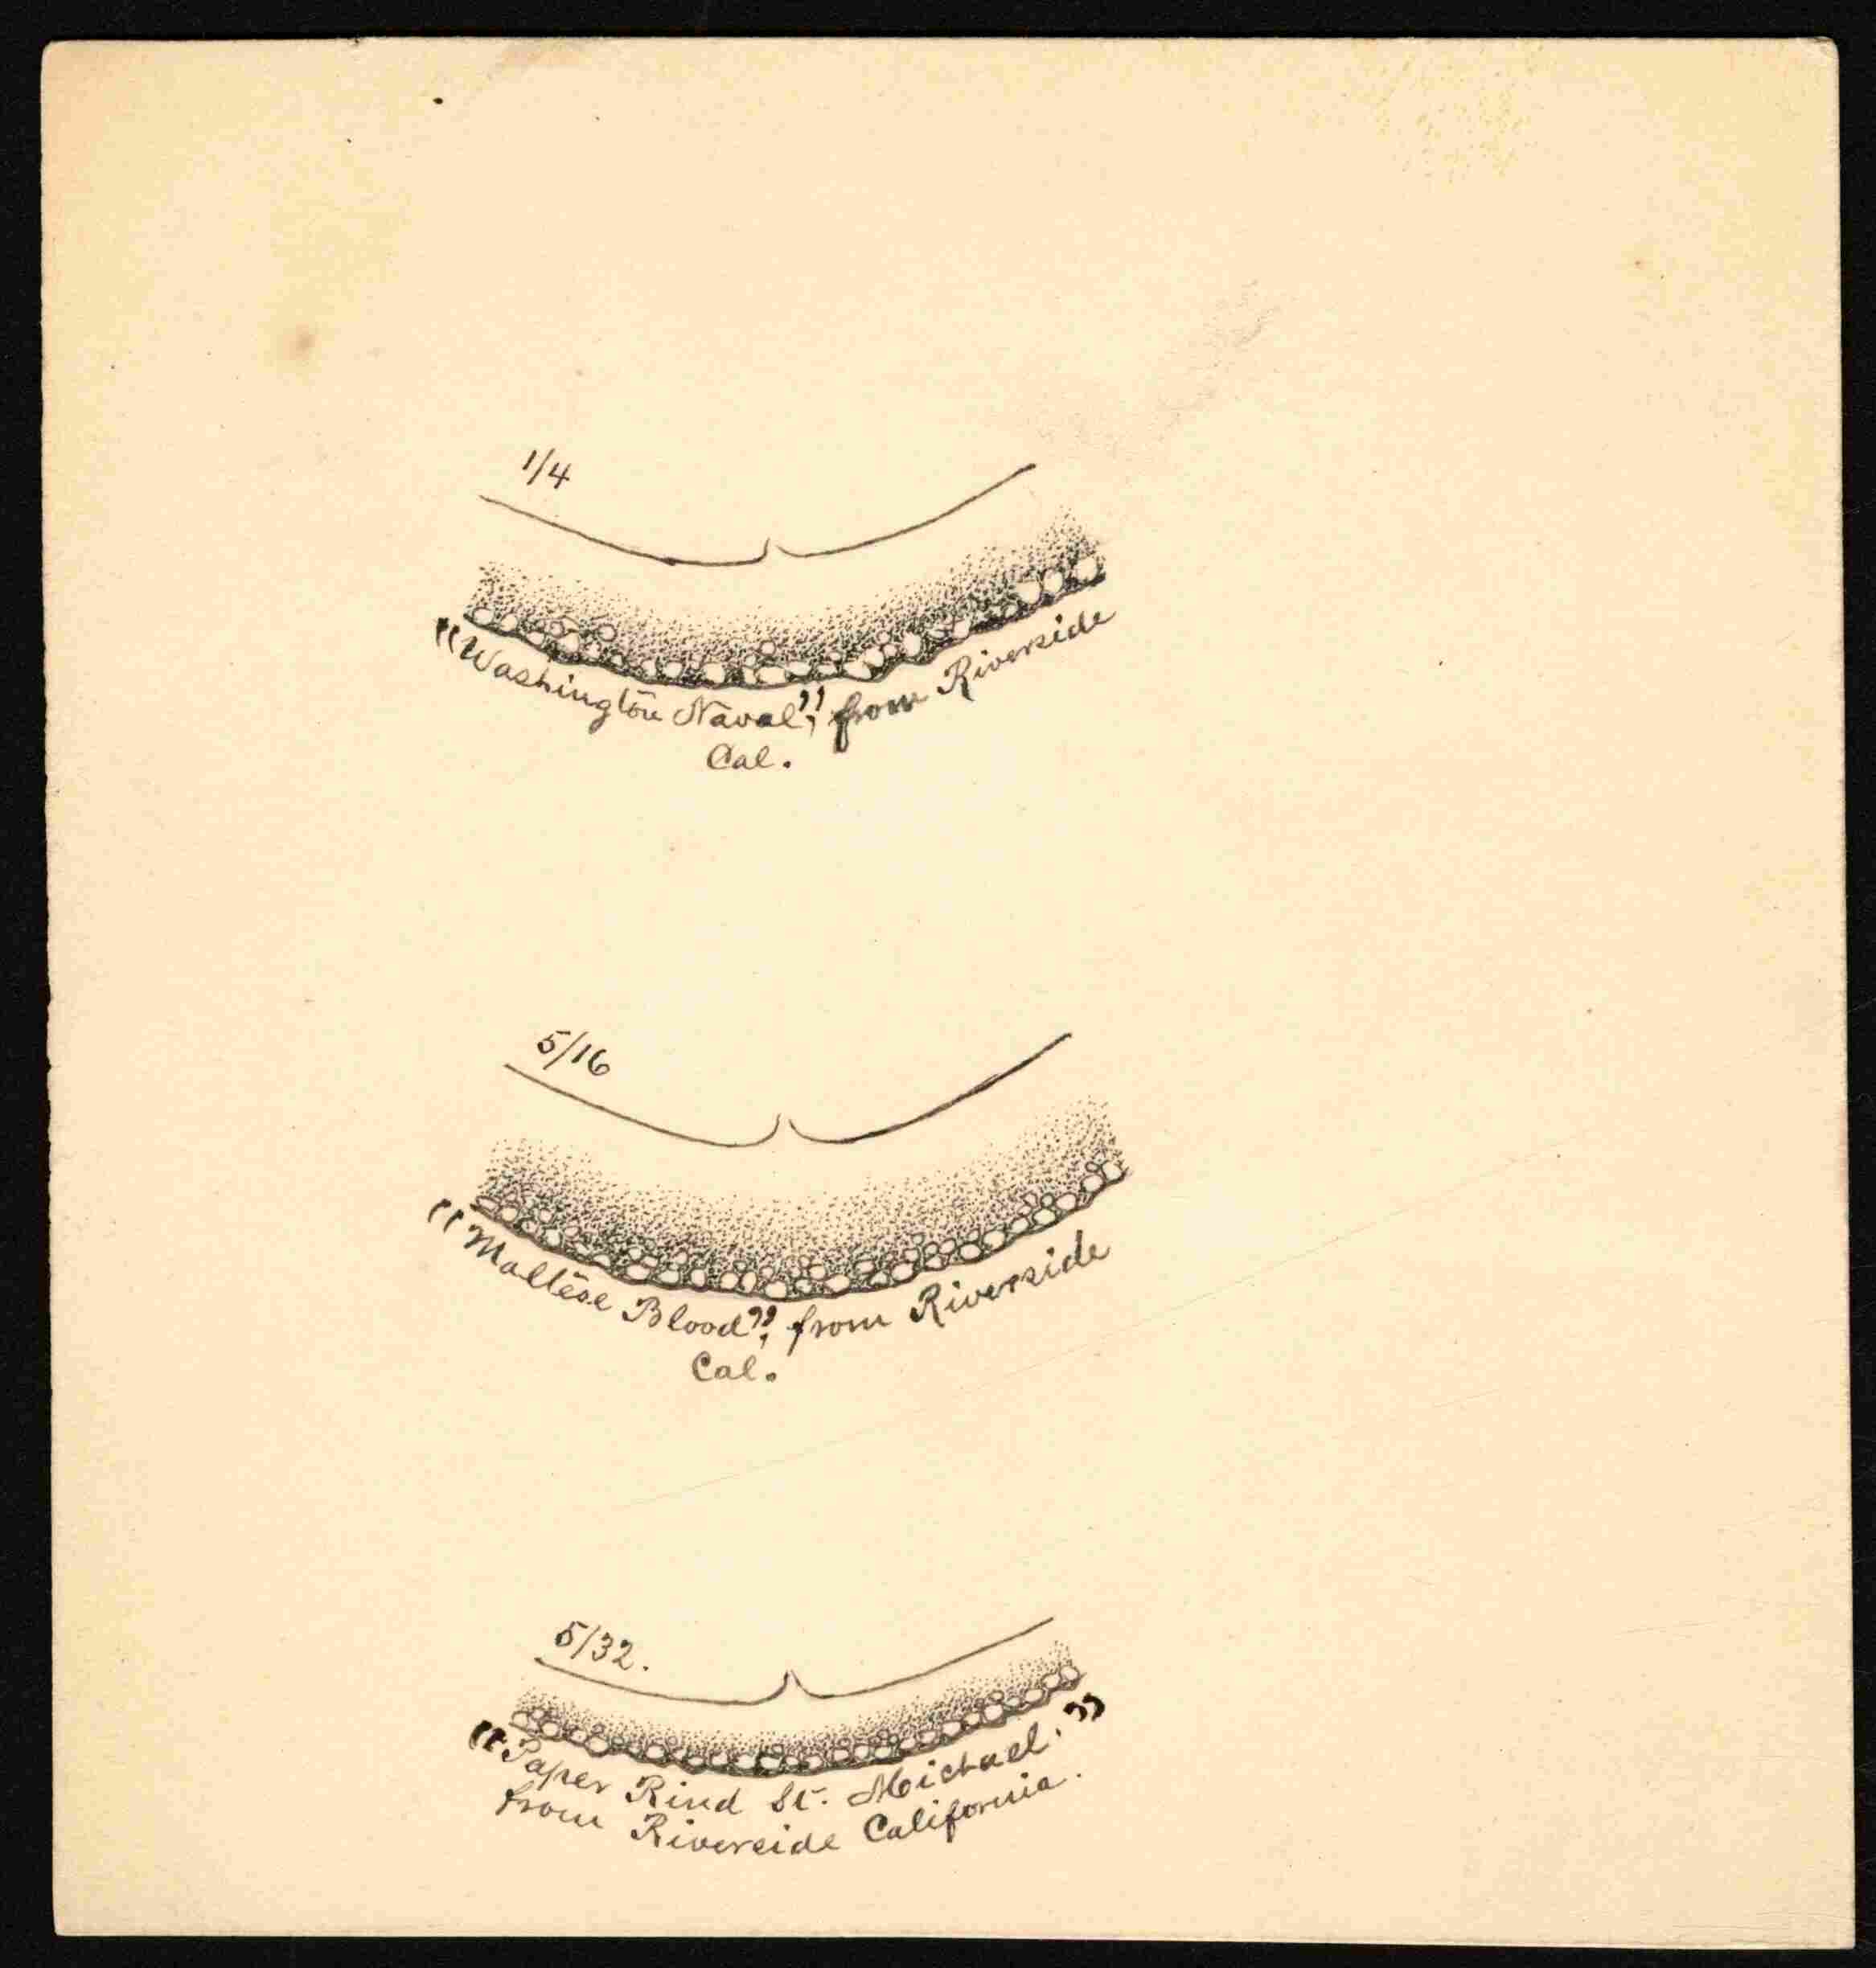 1/4
"Washington Naval", from Riverside
Cal.
5/16
"Maltese Blood", from Riverside
Cal.
5/32.
"Paper Rind St. Michael."
from Riverside California.